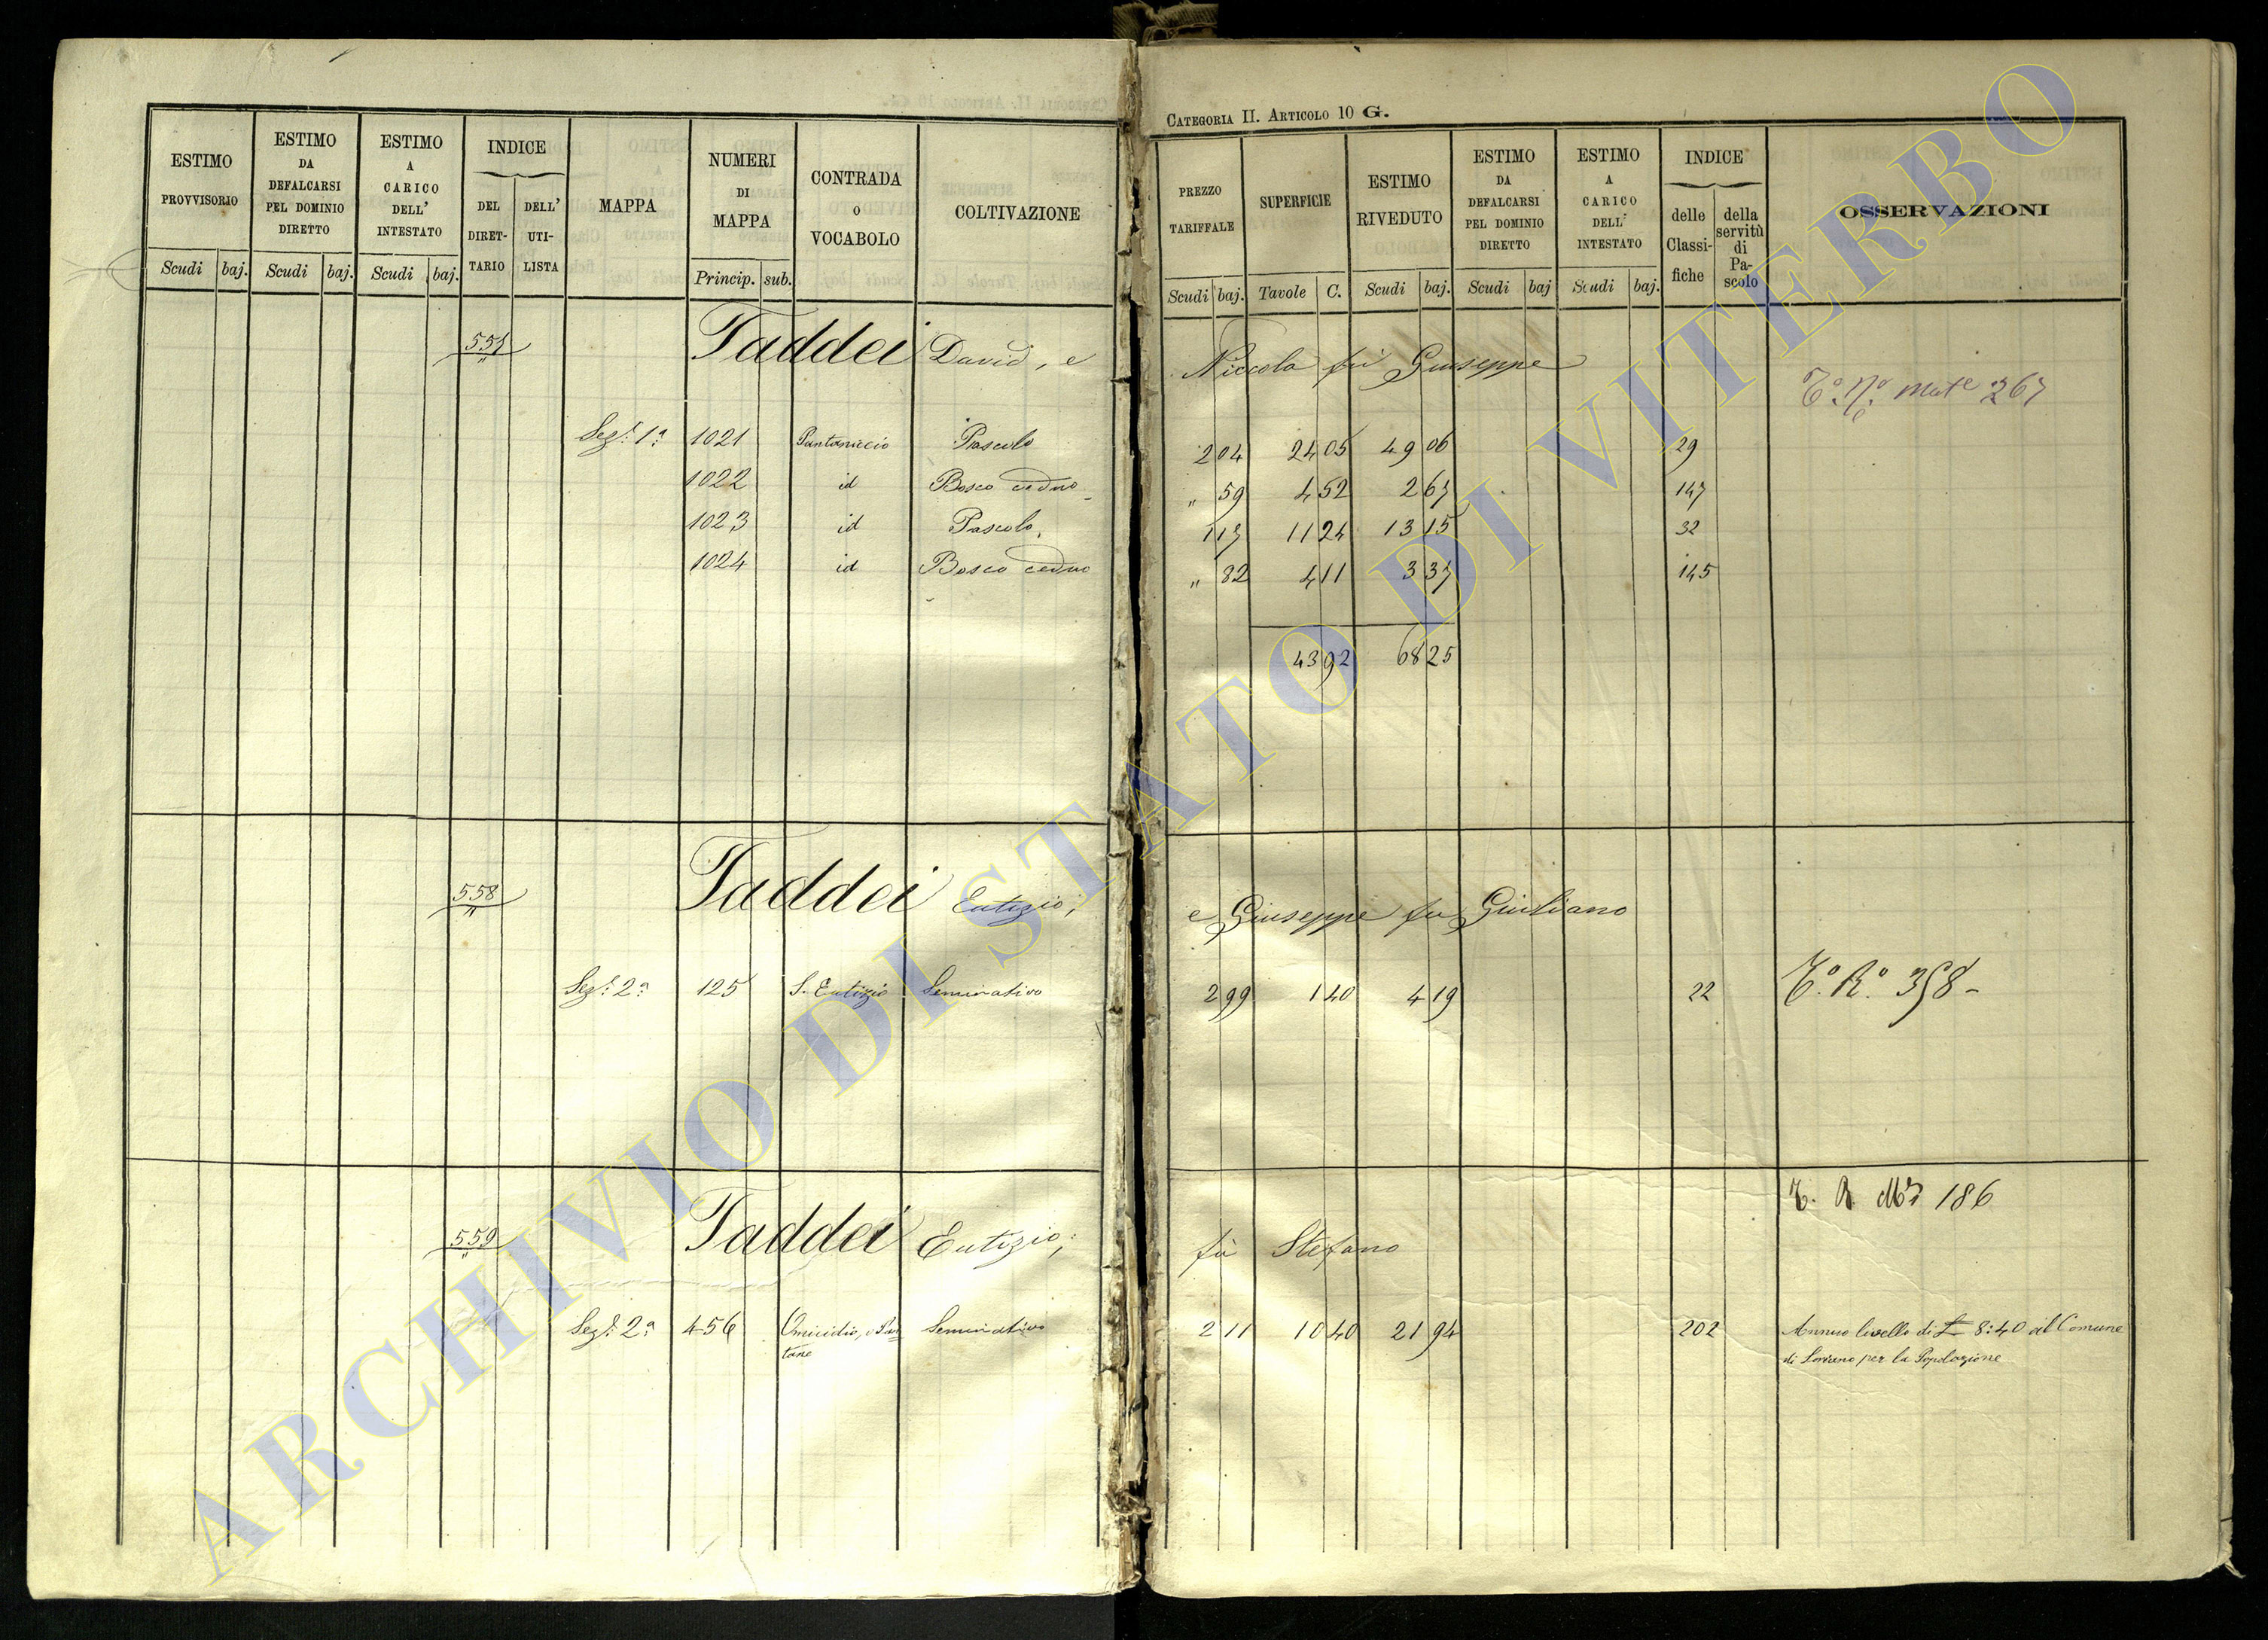 CATEGORIA II. ARTICOLO 10 G.
ESTIMO PROVVISORIO Scudi baj.
ESTIMO DA DEFALCARSI PEL DOMINIO DIRETTO Scudi baj.
ESTIMO A CARICO DELL' INTESTATO Scudi baj.
INDICE DEL DIRET-TARIO DELL' UTI-LISTA
MAPPA
NUMERI DI MAPPA Princip. sub.
CONTRADA O VOCABOLO
COLTIVAZIONE
PREZZO TARIFFALE Scudi baj.
SUPERFICIE Tavole C.
ESTIMO RIVEDUTO Scudi baj.
ESTIMO DA DEFALCARSI PEL DOMINIO DIRETTO Scudi baj
ESTIMO A CARICO DELL' INTESTATO Scudi baj.
INDICE delle Classi-fiche della servitù di Pa-scolo
OSSERVAZIONI
557 Taddei David, e Niccola fù Giuseppe
267
Sez.e 1a 1021 Pantaniccio Pascolo 2 04 24 05 49 06 29
1022 id Bosco ceduo " 59 4 52 2 67 147
1023 id Pascolo 1 17 11 24 13 15 32
1024 id Bosco ceduo " 82 4 11 3 37 145
43 92 68 25
558 Taddei Eutizio, e Giuseppe fu Giuliano
Sez.e 2a 125 S. Eutizio Seminativo 2 99 1 40 4 19 22 T.o R.o 358
T. R. 186
559 Taddei Eutizio, fù Stefano
Sez.e 2a 456 Omicidio, o Pantane Seminativo 2 11 10 40 21 94 202 Annuo livello di £ 8:40 al Comune
di Soriano per la Popolazione
ARCHIVIO DI STATO DI VITERBO